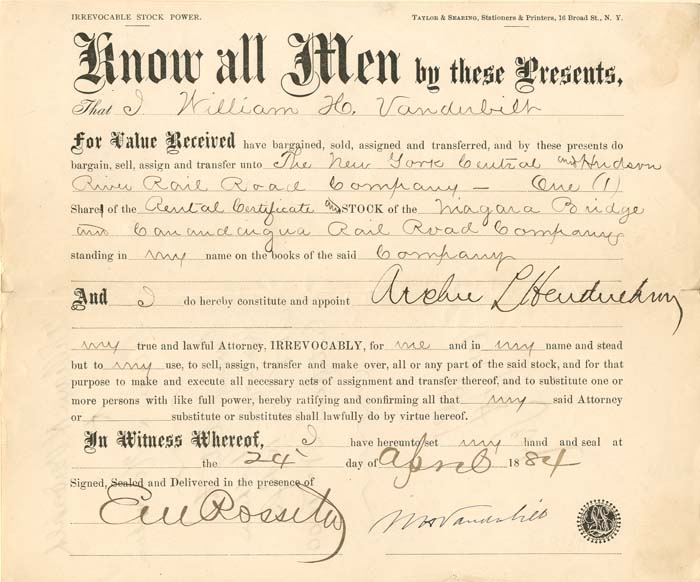 IRREVOCABLE STOCK POWER.
TAYLOR & SEARING, Stationers & Printers, 16 Broad St., N. Y.
Know all Men by these Presents,
That I William H. Vanderbilt
For Value Received have bargained, sold, assigned and transferred, and by these presents do
bargain, sell, assign and transfer unto The New York Central and Hudson
River Rail Road Company — One (1)
Share of the Rental Certificate and STOCK of the Niagara Bridge
and Canandaigua Rail Road Company
standing in my name on the books of the said Company
And I do hereby constitute and appoint Archie L Hendrickson
my true and lawful Attorney, IRREVOCABLY, for me and in my name and stead
but to my use, to sell, assign, transfer and make over, all or any part of the said stock, and for that
purpose to make and execute all necessary acts of assignment and transfer thereof, and to substitute one or
more persons with like full power, hereby ratifying and confirming all that my said Attorney
or substitute or substitutes shall lawfully do by virtue hereof.
In Witness Whereof, I have hereunto set my hand and seal at
the 24 day of April 1884
Signed, Sealed and Delivered in the presence of
E W Rossiter
Wm H Vanderbilt